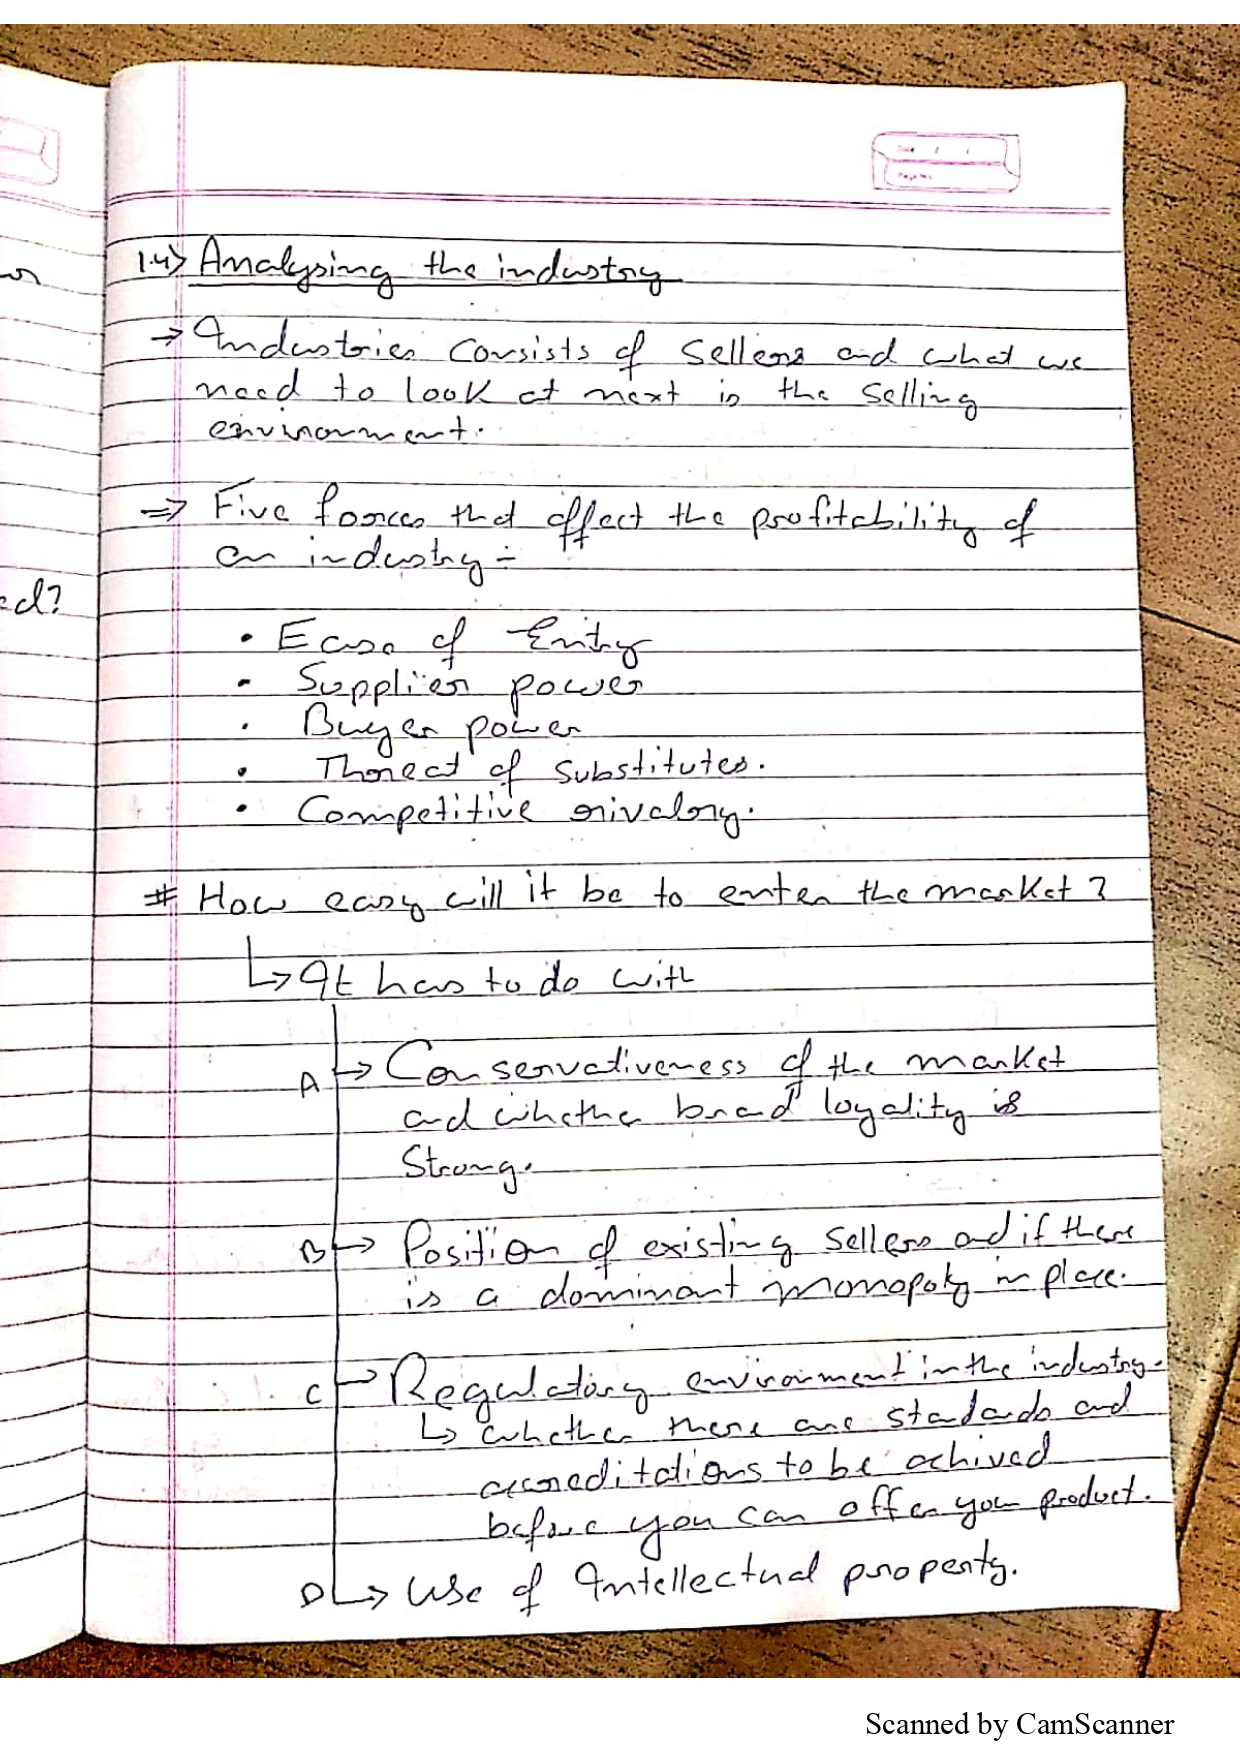 1.4) Analysing the industry
→ Industries consists of sellers and what we
need to look at next is the selling
environment.
⇒ Five forces that affect the profitability of
an industry ÷
• Ease of Entry
• Supplier power
• Buyer power
• Threat of substitutes.
• Competitive rivalry.
ed?
# How easy will it be to enter the market?
↳ It has to do with
A → Conservativeness of the market
and whether brand loyality is
Strong.
B → Position of existing sellers and if there
is a dominant monopoly in place.
C → Regulatory environment in the industry.
↳ whether there are standards and
accreditations to be achived
before you can offer your product.
D → Use of Intellectual property.
Scanned by CamScanner